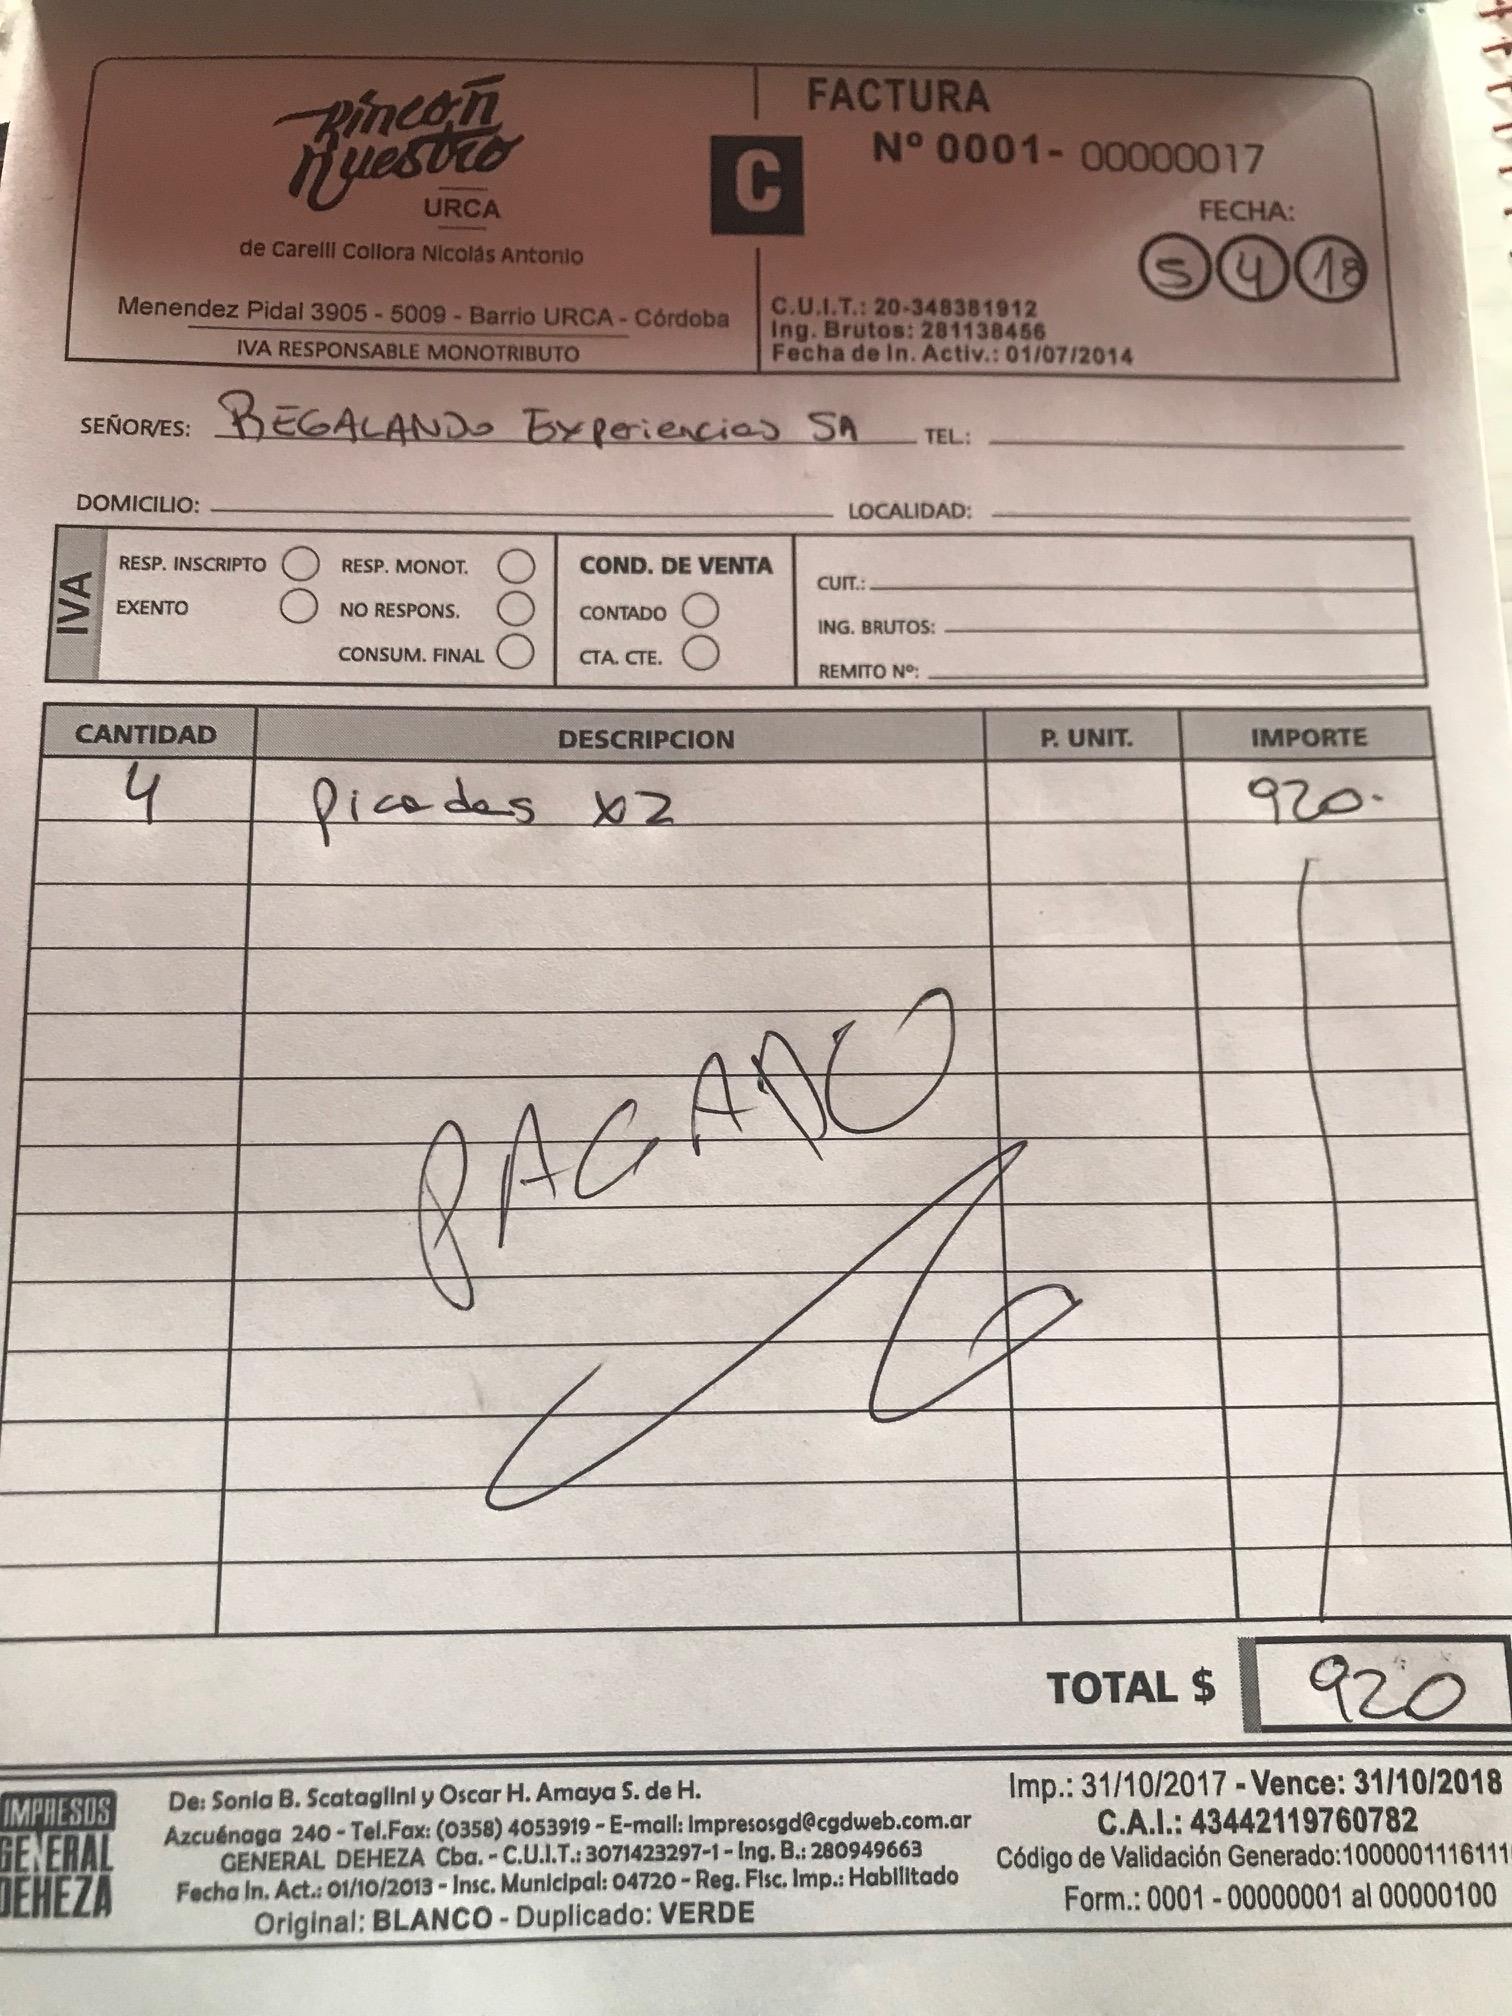 Rincón
Nuestro
URCA
de Carelli Collora Nicolás Antonio
Menendez Pidal 3905 - 5009 - Barrio URCA - Córdoba
IVA RESPONSABLE MONOTRIBUTO
C
FACTURA
Nº 0001 - 00000017
FECHA:
5 4 18
C.U.I.T.: 20-348381912
Ing. Brutos: 281138456
Fecha de In. Activ.: 01/07/2014
SEÑOR/ES: REGALANDO Experiencias SA TEL.:
DOMICILIO: LOCALIDAD:
IVA
RESP. INSCRIPTO RESP. MONOT.
EXENTO NO RESPONS.
CONSUM. FINAL
COND. DE VENTA
CONTADO
CTA. CTE.
CUIT.:
ING. BRUTOS:
REMITO Nº:
CANTIDAD DESCRIPCION P. UNIT. IMPORTE
4 Picadas x2 920.
PAGADO
TOTAL $ 920
IMPRESOS
GENERAL
DEHEZA
De: Sonia B. Scataglini y Oscar H. Amaya S. de H.
Azcuénaga 240 - Tel.Fax: (0358) 4053919 - E-mail: impresosgd@cgdweb.com.ar
GENERAL DEHEZA Cba. - C.U.I.T.: 30714232971 - Ing. B.: 280949663
Fecha In. Act.: 01/10/2013 - Insc. Municipal: 04720 - Reg. Fisc. Imp.: Habilitado
Original: BLANCO - Duplicado: VERDE
Imp.: 31/10/2017 - Vence: 31/10/2018
C.A.I.: 43442119760782
Código de Validación Generado:1000001116111
Form.: 0001 - 00000001 al 00000100